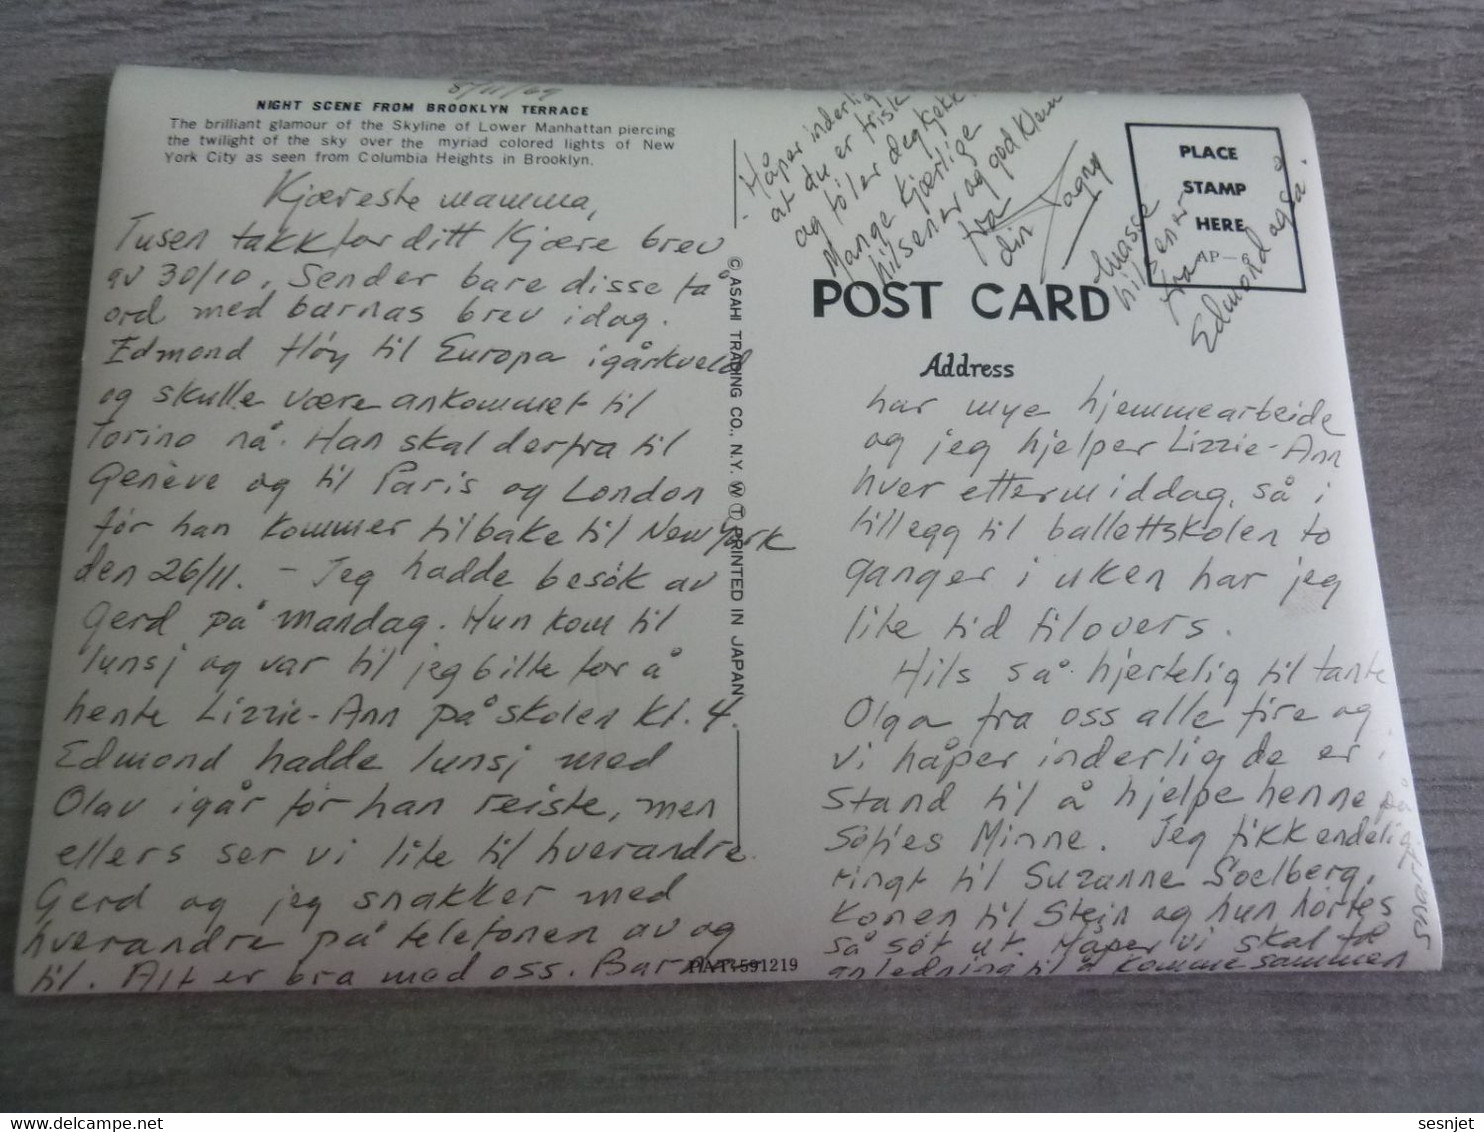 8/11/69
NIGHT SCENE FROM BROOKLYN TERRACE
The brilliant glamour of the Skyline of Lower Manhattan piercing
the twilight of the sky over the myriad colored lights of New
York City as seen from Columbia Heights in Brooklyn.
Kjæreste mamma,
Tusen takk for ditt kjære brev
av 30/10. Sender bare disse få
ord med barnas brev idag.
Edmond fløy til Europa igårkveld
og skulle være ankommet til
Torino nå. Han skal derfra til
Genève og til Paris og London
før han kommer tilbake til New York
den 26/11. – Jeg hadde besøk av
Gerd på mandag. Hun kom til
lunsj og var til jeg bilte for å
hente Lizzie-Ann på skolen kl. 4.
Edmond hadde lunsj med
Olav igår før han reiste, men
ellers ser vi lite til hverandre.
Gerd og jeg snakker med
hverandre på telefonen av og
til. Alt er bra med oss. Barna
© ASAHI TRADING CO., N.Y. W T PRINTED IN JAPAN
591219
POST CARD
Address
PLACE
STAMP
HERE
AP-6
har mye hjemmearbeide
og jeg hjelper Lizzie-Ann
hver ettermiddag, så i
tillegg til ballettskolen to
ganger i uken har jeg
lite tid tilovers.
Hils så hjertelig til tante
Olga fra oss alle fire og
vi håper inderlig de er i
stand til å hjelpe henne på
Sofies Minne. Jeg fikk endelig
ringt til Suzanne Soelberg,
konen til Stein og hun hørtes
så søt ut. Håper vi skal få
anledning til å komme sammen
snart
Håper inderlig
at du er frisk
og føler deg kjekk.
Mange kjærlige
hilsener og god klem
fra
din Tagny
Masse
hilsener
fra
Edmond også.